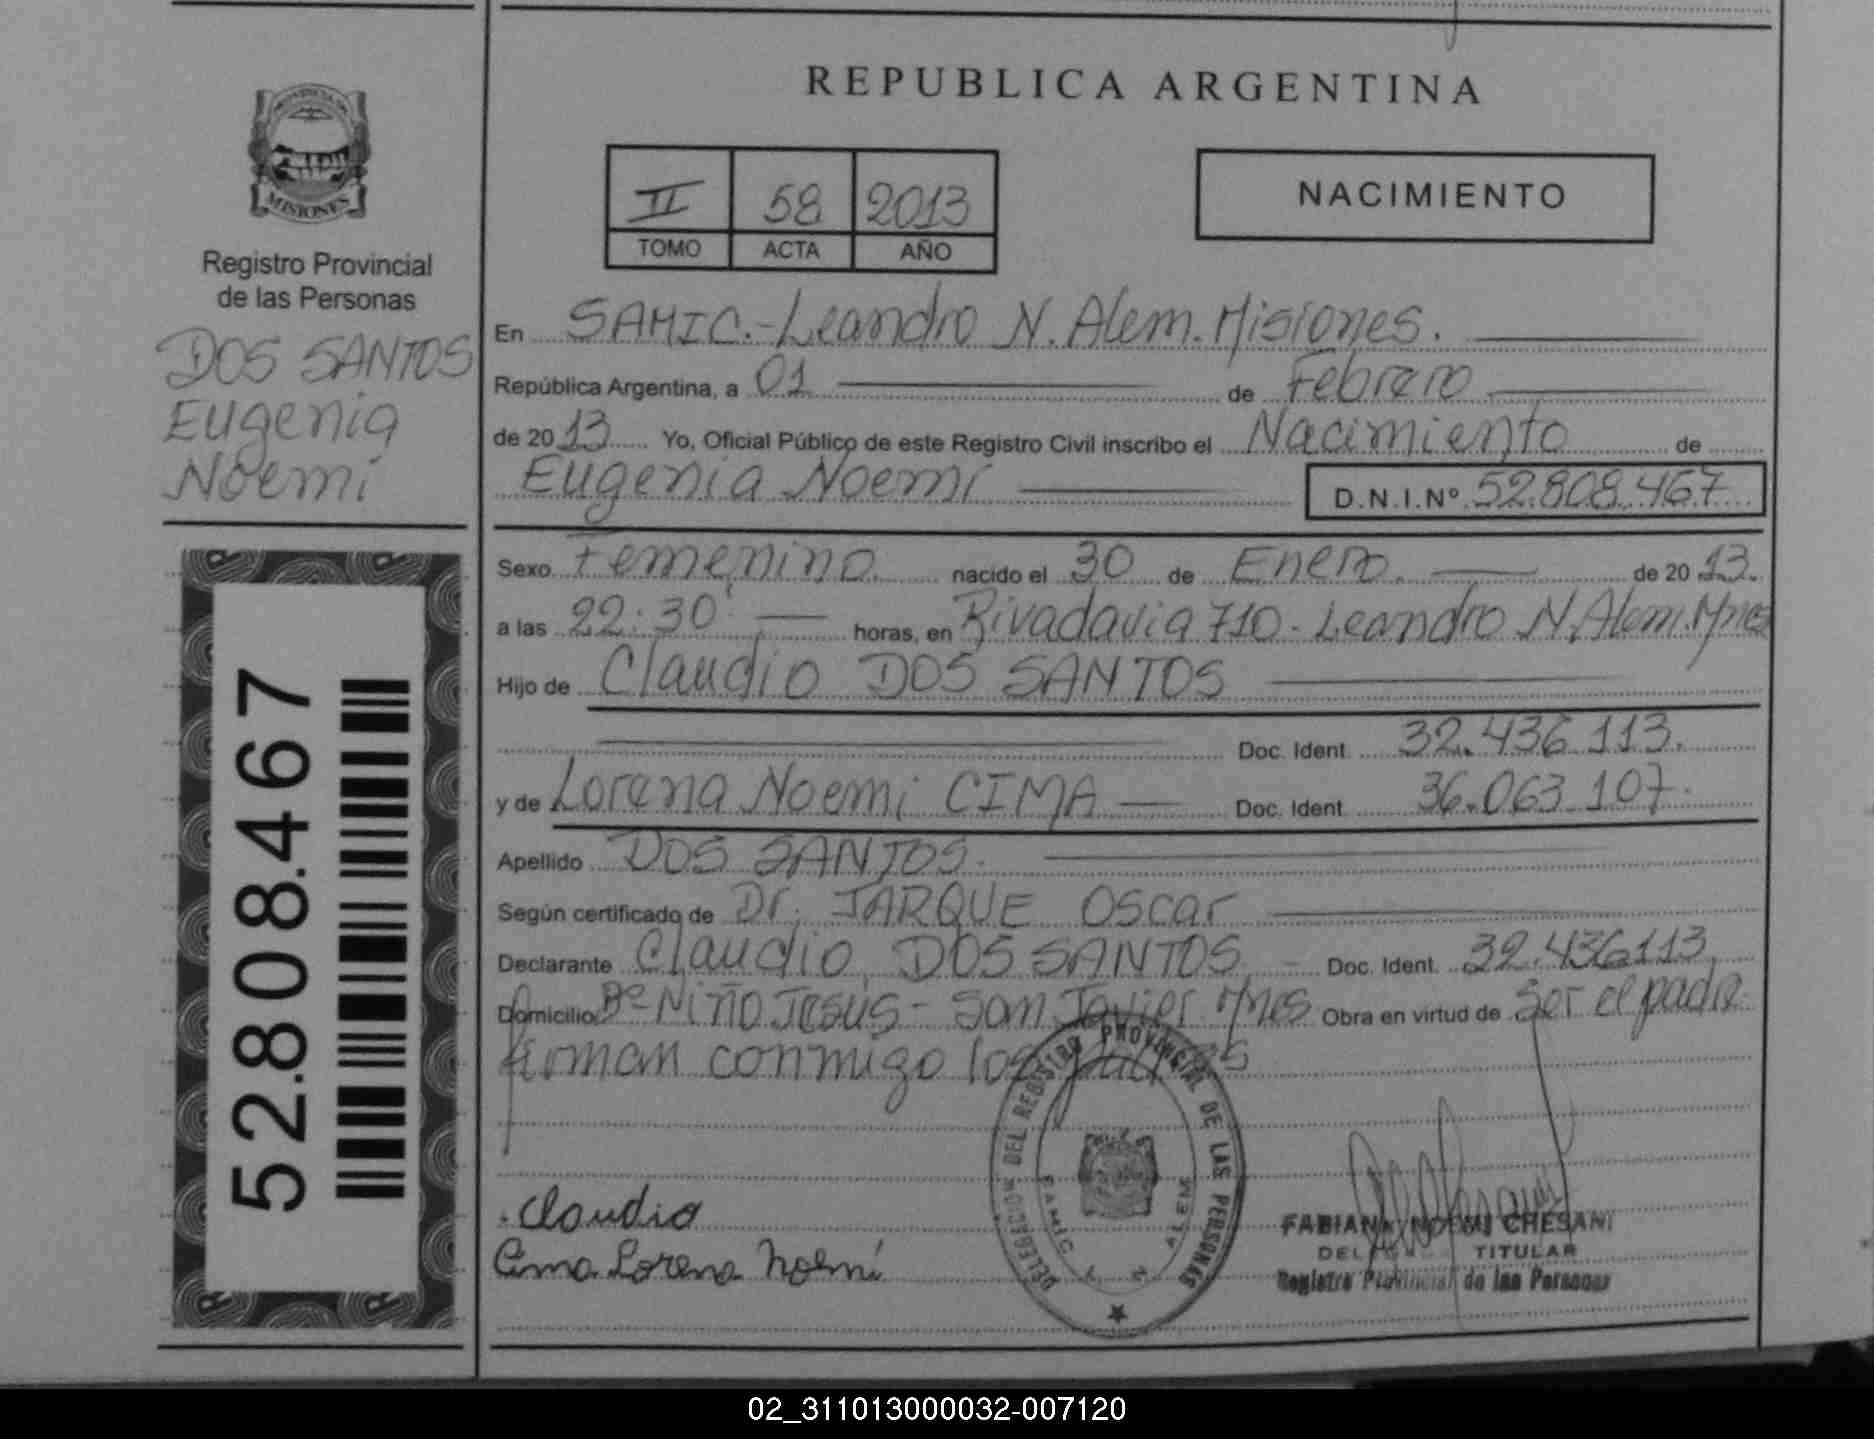 REPUBLICA ARGENTINA
PROVINCIA DE
MISIONES
Registro Provincial
de las Personas
DOS SANTOS
Eugenia
Noemí
52.808.467
II 58 2013
TOMO ACTA AÑO
NACIMIENTO
En SAMIC.-Leandro N. Alem. Misiones.
República Argentina, a 01 de Febrero
de 2013 Yo, Oficial Público de este Registro Civil inscribo el Nacimiento de
Eugenia Noemí D.N.I.Nº 52.808.467
Sexo Femenino nacido el 30 de Enero de 2013.
a las 22:30' horas, en Rivadavia 710- Leandro N. Alem. Mnes
Hijo de Claudio DOS SANTOS
Doc. Ident. 32.436.113.
y de Lorena Noemi CIMA Doc. Ident. 36.063.107.
Apellido DOS SANTOS.
Según certificado de Dr. JARQUE Oscar
Declarante Claudio DOS SANTOS Doc. Ident. 32.436113
Domicilio Bº Niño Jesús- San Javier Mnes Obra en virtud de ser el padre
firman conmigo los padres
Claudio
Cima Lorena Noemí
DELEGACION DEL REGISTRO PROVINCIAL DE LAS PERSONAS
SAMIC L. N. ALEM
FABIANA NOEMI CHESANI
TITULAR
Registro Provincial de las Personas
02_311013000032-007120